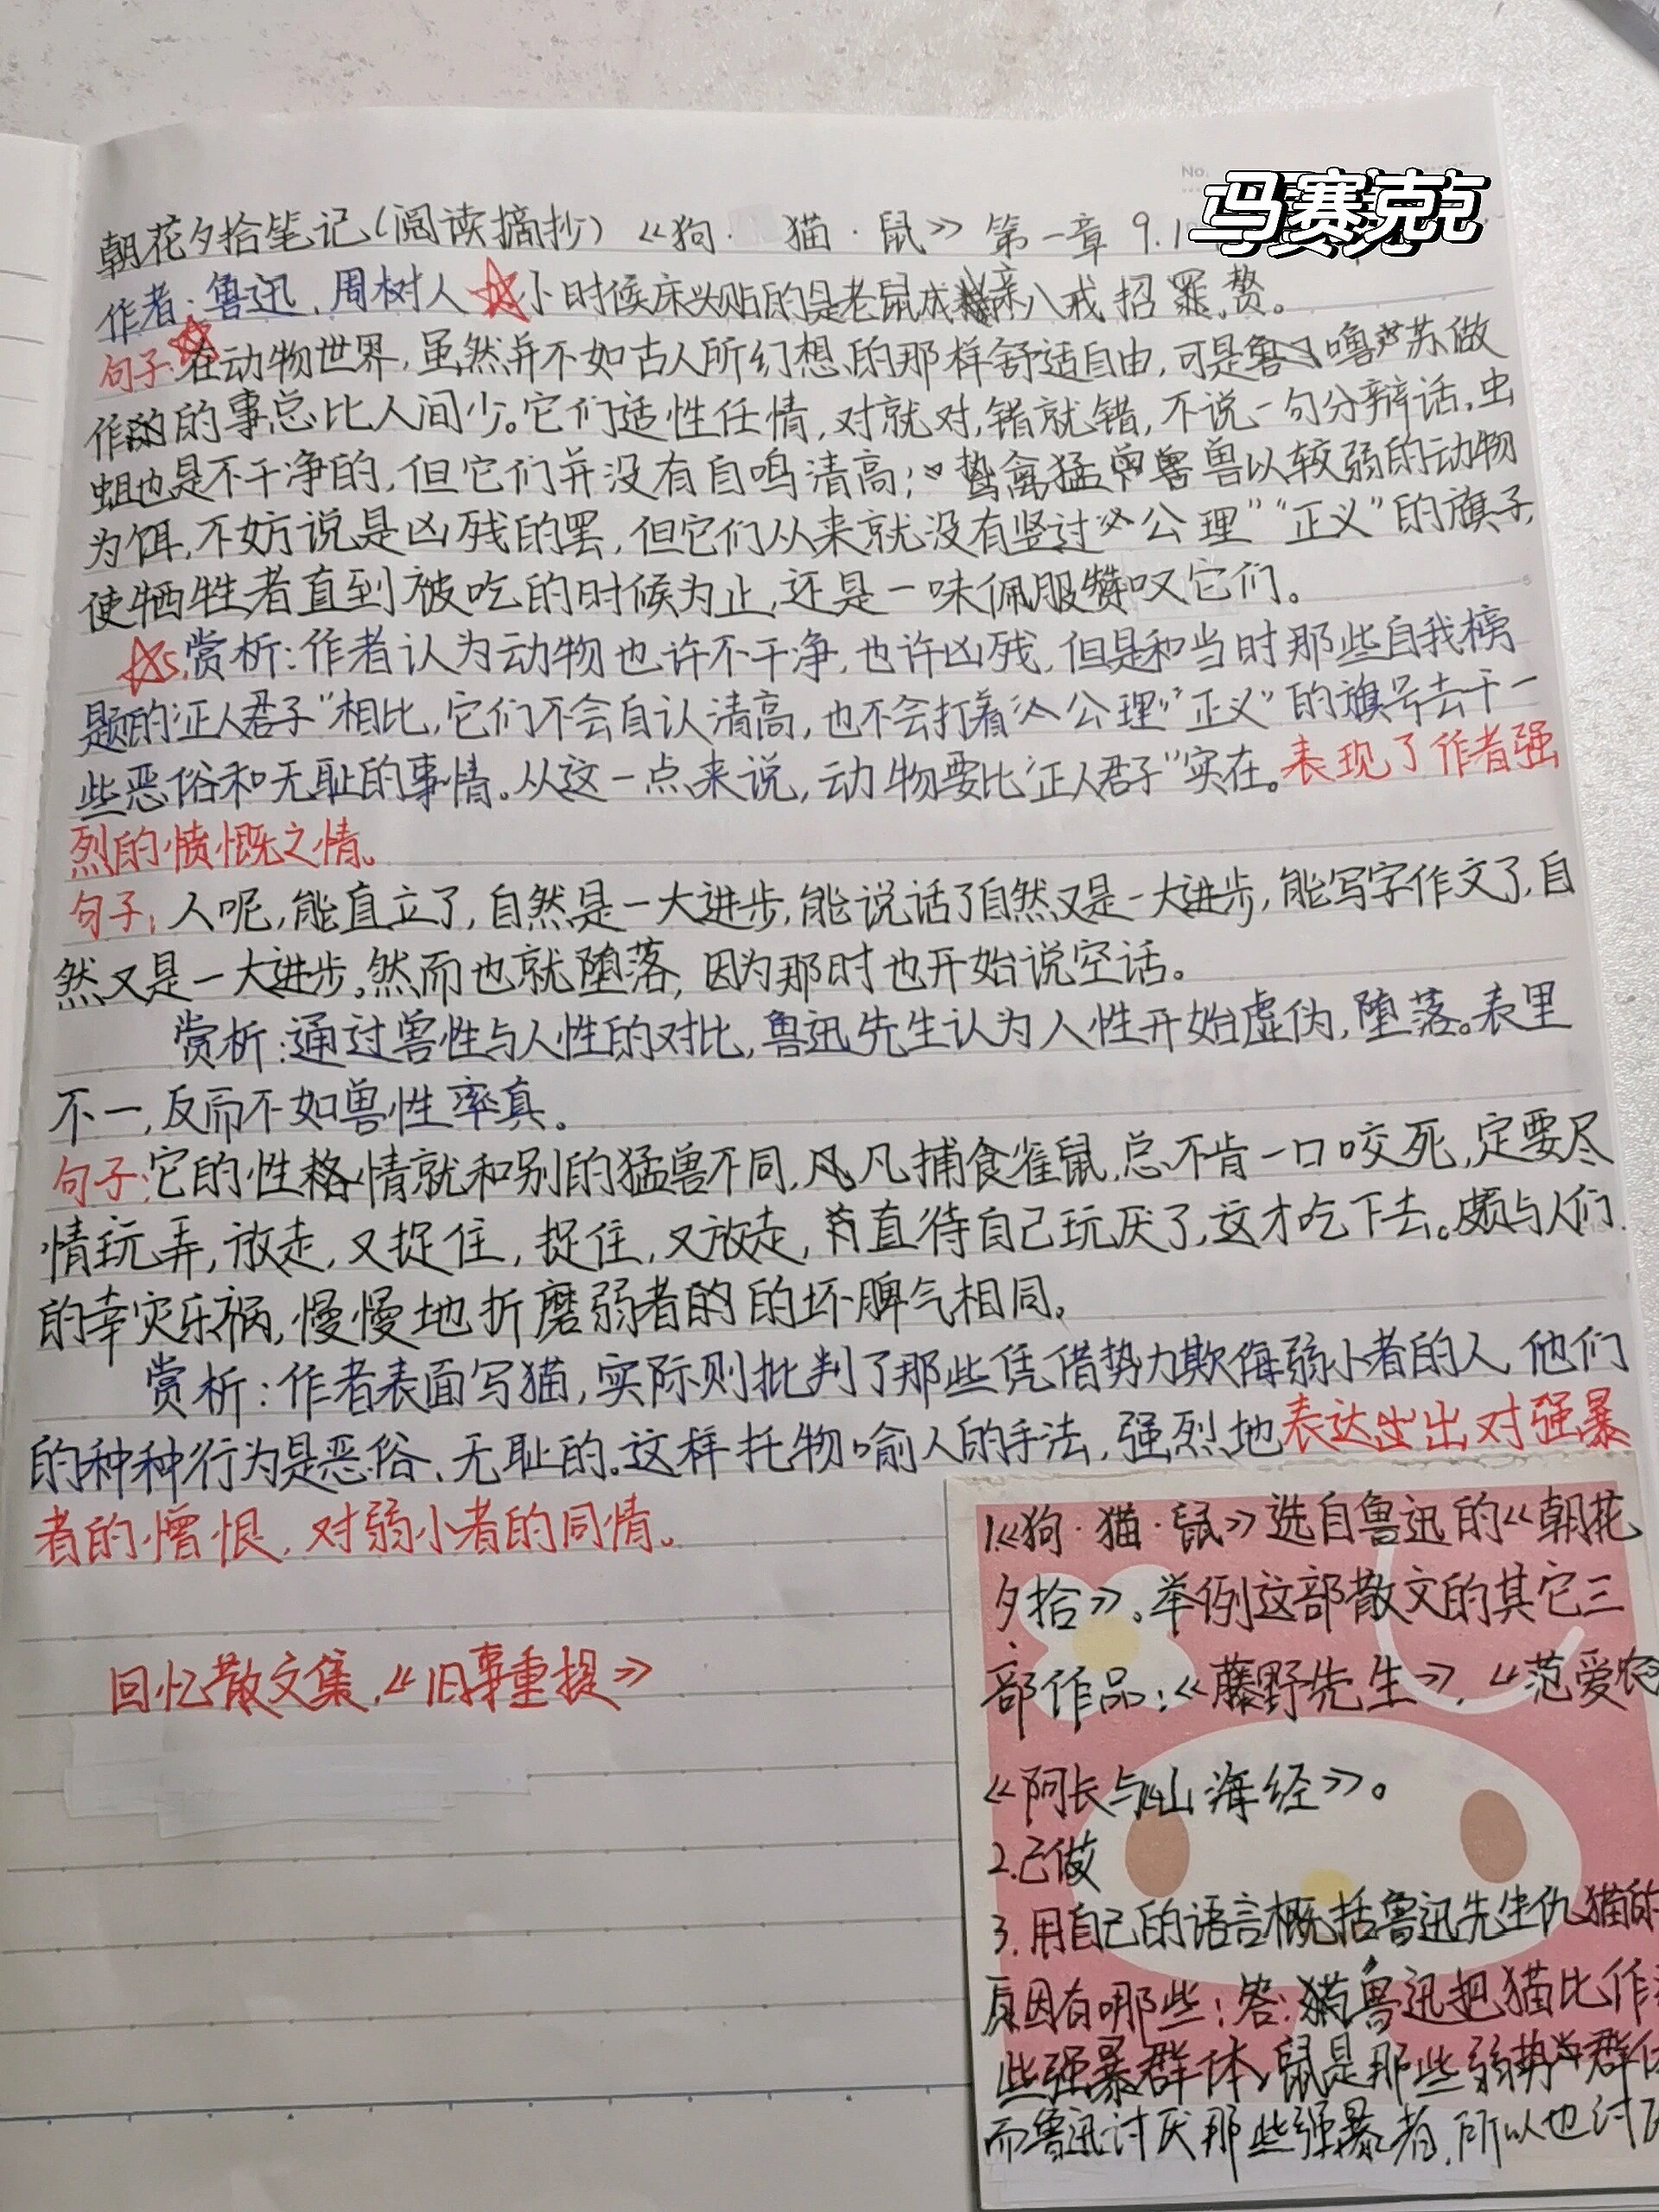 No.
马赛克
朝花夕拾笔记(阅读摘抄)《狗·猫·鼠》第一章 9.1
作者:鲁迅,周树人 小时候床头贴的是老鼠成亲八戒招赘。
句子:在动物世界,虽然并不如古人所幻想的那样舒适自由,可是噜苏做
作的事总比人间少。它们适性任情,对就对,错就错,不说一句分辩话。虫
蛆也是不干净的,但它们并没有自鸣清高;鸷禽猛兽以较弱的动物
为饵,不妨说是凶残的罢,但它们从来就没有竖过“公理”“正义”的旗子,
使牺牲者直到被吃的时候为止,还是一味佩服赞叹它们。
赏析:作者认为动物也许不干净,也许凶残,但是和当时那些自我榜
题的“正人君子”相比,它们不会自认清高,也不会打着“公理”“正义”的旗号去干一
些恶俗和无耻的事情。从这一点来说,动物要比“正人君子”实在。表现了作者强
烈的愤慨之情。
句子:人呢,能直立了,自然是一大进步,能说话了自然又是一大进步,能写字作文了,自
然又是一大进步。然而也就堕落,因为那时也开始说空话。
赏析:通过兽性与人性的对比,鲁迅先生认为人性开始虚伪,堕落。表里
不一,反而不如兽性率真。
句子:它的性格情就和别的猛兽不同,凡捕食雀鼠,总不肯一口咬死,定要尽
情玩弄,放走,又捉住,捉住,又放走,直待自己玩厌了,这才吃下去。颇与人们
的幸灾乐祸,慢慢地折磨弱者的坏脾气相同。
赏析:作者表面写猫,实际则批判了那些凭借势力欺侮弱小者的人,他们
的种种行为是恶俗、无耻的。这样托物喻人的手法,强烈地表达出对强暴
者的憎恨,对弱小者的同情。
回忆散文集,《旧事重提》
1.《狗·猫·鼠》选自鲁迅的《朝花
夕拾》。举例这部散文的其它三
部作品:《藤野先生》,《范爱农
《阿长与山海经》。
2.已做
3.用自己的语言概括鲁迅先生仇猫的
原因有哪些:答:鲁迅把猫比作
些强暴群体,鼠是那些弱势群体
而鲁迅讨厌那些强暴者,所以也讨厌